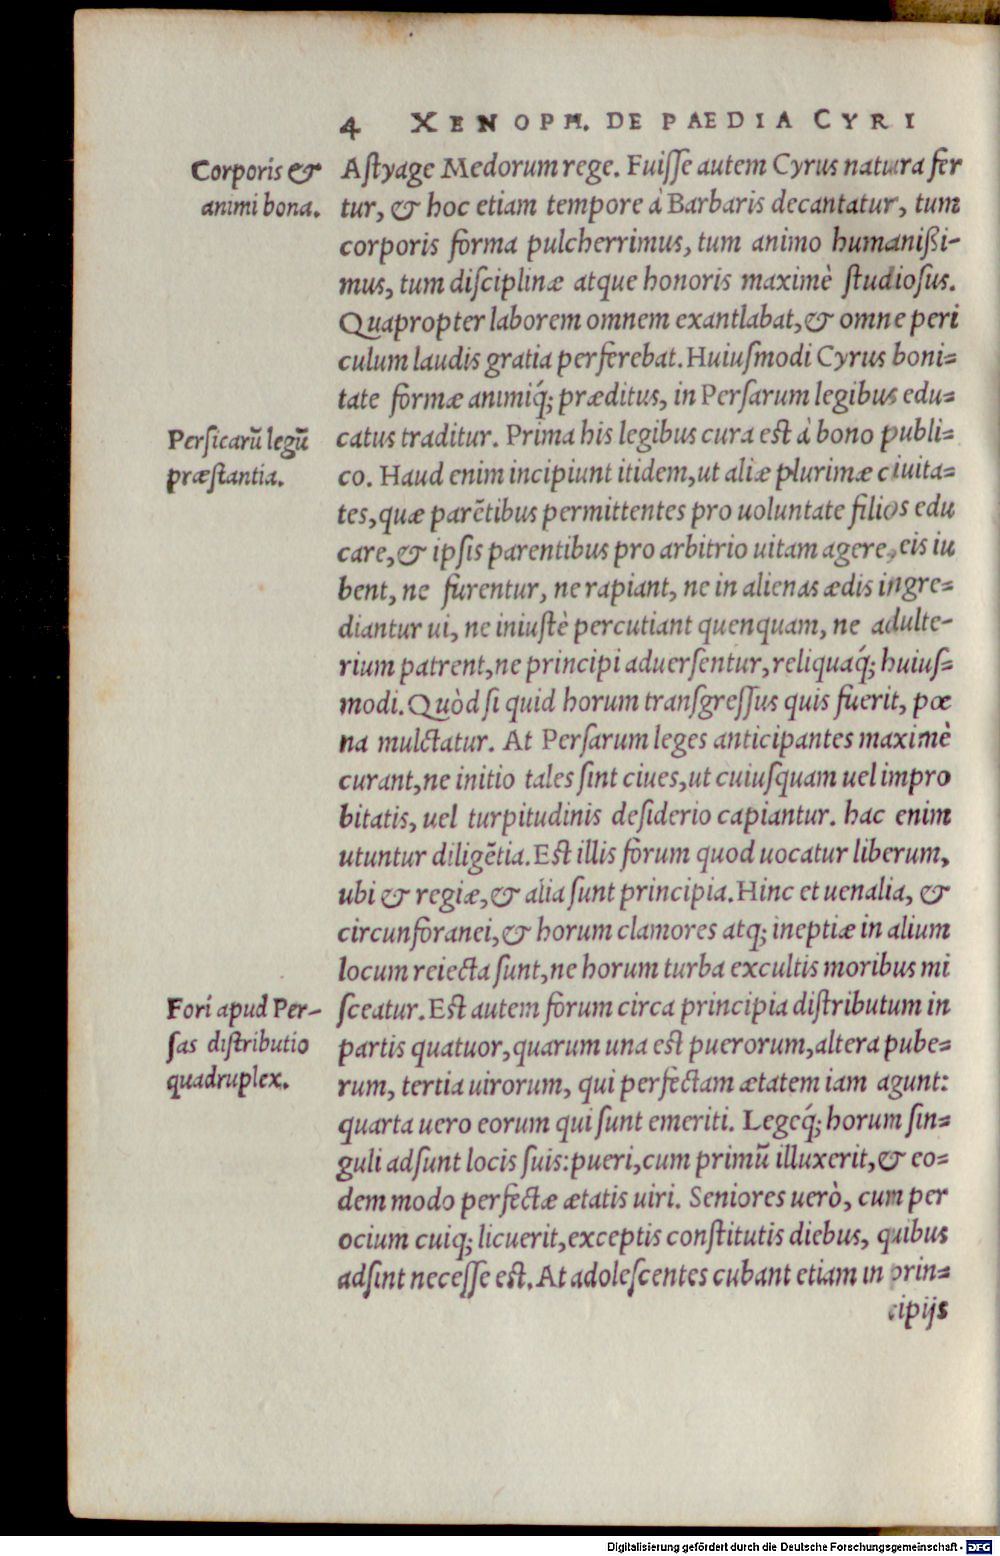 4 XENOPH. DE PAEDIA CYRI
Corporis &
animi bona.
Aſtyage Medorum rege. Fuiſſe autem Cyrus natura fer
tur, & hoc etiam tempore à Barbaris decantatur, tum
corporis forma pulcherrimus, tum animo humanißi-
mus, tum diſciplinæ atque honoris maximè ſtudioſus.
Quapropter laborem omnem exantlabat, & omne peri
culum laudis gratia perferebat. Huiuſmodi Cyrus boni-
tate formæ animiq́; præditus, in Perſarum legibus edu-
Perſicarũ legũ
præſtantia.
catus traditur. Prima his legibus cura est à bono publi-
co. Haud enim incipiunt itidem, ut aliæ plurimæ ciuita-
tes, quæ parẽtibus permittentes pro uoluntate filios edu
care, & ipſis parentibus pro arbitrio uitam agere, eis iu
bent, ne furentur, ne rapiant, ne in alienas ædis ingre-
diantur ui, ne iniuſtè percutiant quenquam, ne adulte-
rium patrent, ne principi aduerſentur, reliquaq́; huiuſ-
modi. Quòd ſi quid horum tranſgreſſus quis fuerit, pœ
na mulctatur. At Perſarum leges anticipantes maximè
curant, ne initio tales ſint ciues, ut cuiuſquam uel impro
bitatis, uel turpitudinis deſiderio capiantur. hac enim
utuntur diligẽtia. Est illis forum quod uocatur liberum,
ubi & regiæ, & alia ſunt principia. Hinc et uenalia, &
circunforanei, & horum clamores atq; ineptiæ in alium
locum reiecta ſunt, ne horum turba excultis moribus mi
Fori apud Per-
ſas diſtributio
quadruplex.
ſceatur. Est autem forum circa principia diſtributum in
partis quatuor, quarum una est puerorum, altera pube-
rum, tertia uirorum, qui perfectam ætatem iam agunt:
quarta uero eorum qui ſunt emeriti. Legeq́; horum ſin-
guli adſunt locis ſuis: pueri, cum primũ illuxerit, & eo-
dem modo perfectæ ætatis uiri. Seniores uerò, cum per
ocium cuiq; licuerit, exceptis conſtitutis diebus, quibus
adſint neceſſe est. At adoleſcentes cubant etiam in prin-
cipijs
Digitalisierung gefördert durch die Deutsche Forschungsgemeinschaft - DFG